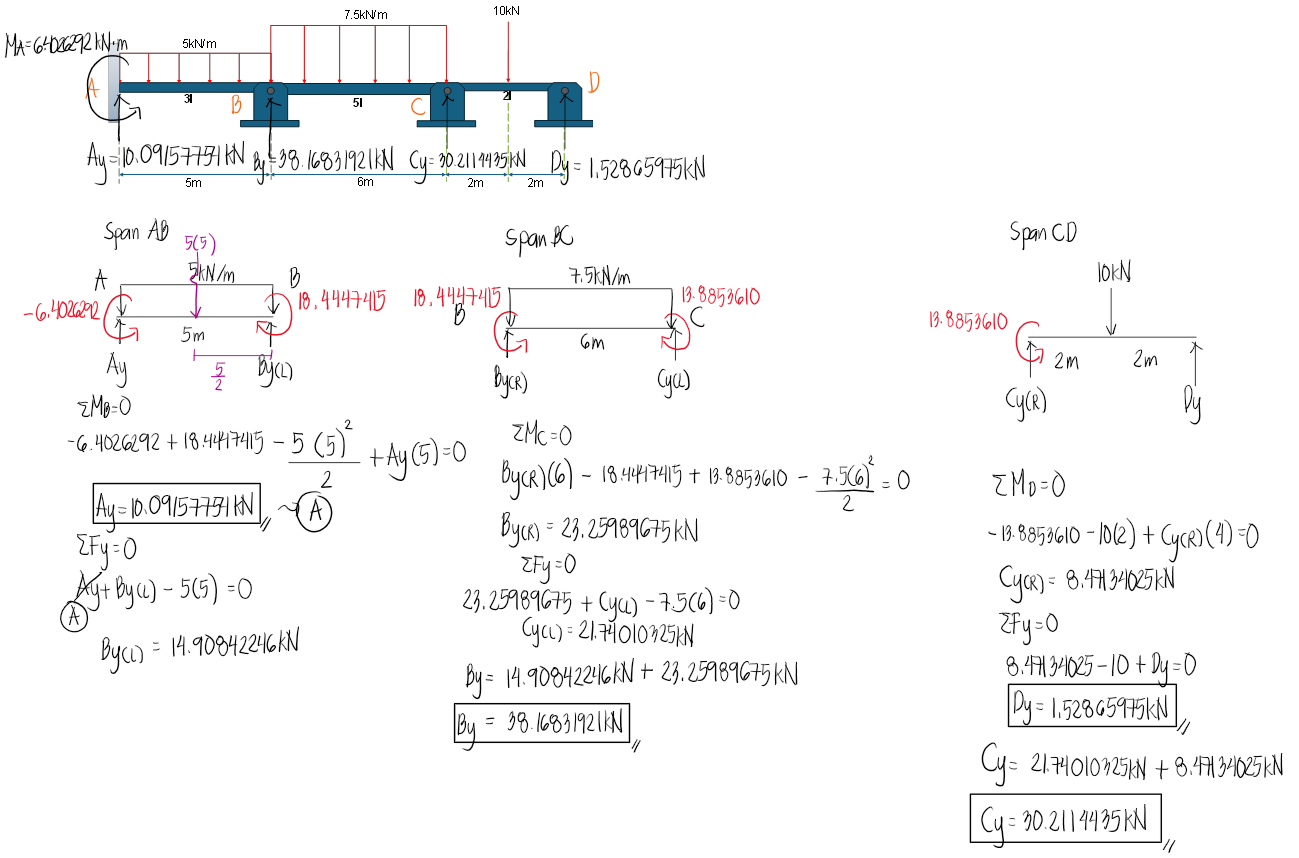 7.5kN/m
10kN
MA=6.4026292kN·m
5kN/m
A
3I
B
5I
C
2I
D
Ay=10.09157751kN
By=38.16831921kN
Cy=30.2114435kN
Dy=1.52865975kN
5m
6m
2m
2m
Span AB
5(5)
A
5kN/m
B
-6.4026292
18.4447415
5m
Ay
5/2
By(L)
ΣMB=0
-6.4026292 + 18.4447415 - 5(5)²/2 + Ay(5)=0
Ay=10.09157751kN
A
ΣFy=0
Ay+By(L) - 5(5) =0
A
By(L) = 14.90842246kN
Span BC
7.5kN/m
18.4447415
13.8853610
B
C
6m
By(R)
Cy(L)
ΣMC=0
By(R)(6) - 18.4447415 + 13.8853610 - 7.5(6)²/2 = 0
By(R) = 23.25989675kN
ΣFy=0
23.25989675 + Cy(L) - 7.5(6)=0
Cy(L)=21.74010325kN
By= 14.90842246kN + 23.25989675kN
By = 38.16831921kN
Span CD
10kN
13.8853610
2m
2m
Cy(R)
Dy
ΣMD=0
-13.8853610 -10(2) + Cy(R)(4)=0
Cy(R)= 8.47134025kN
ΣFy=0
8.47134025-10 + Dy=0
Dy= 1.52865975kN
Cy= 21.74010325kN + 8.47134025kN
Cy = 30.2114435kN